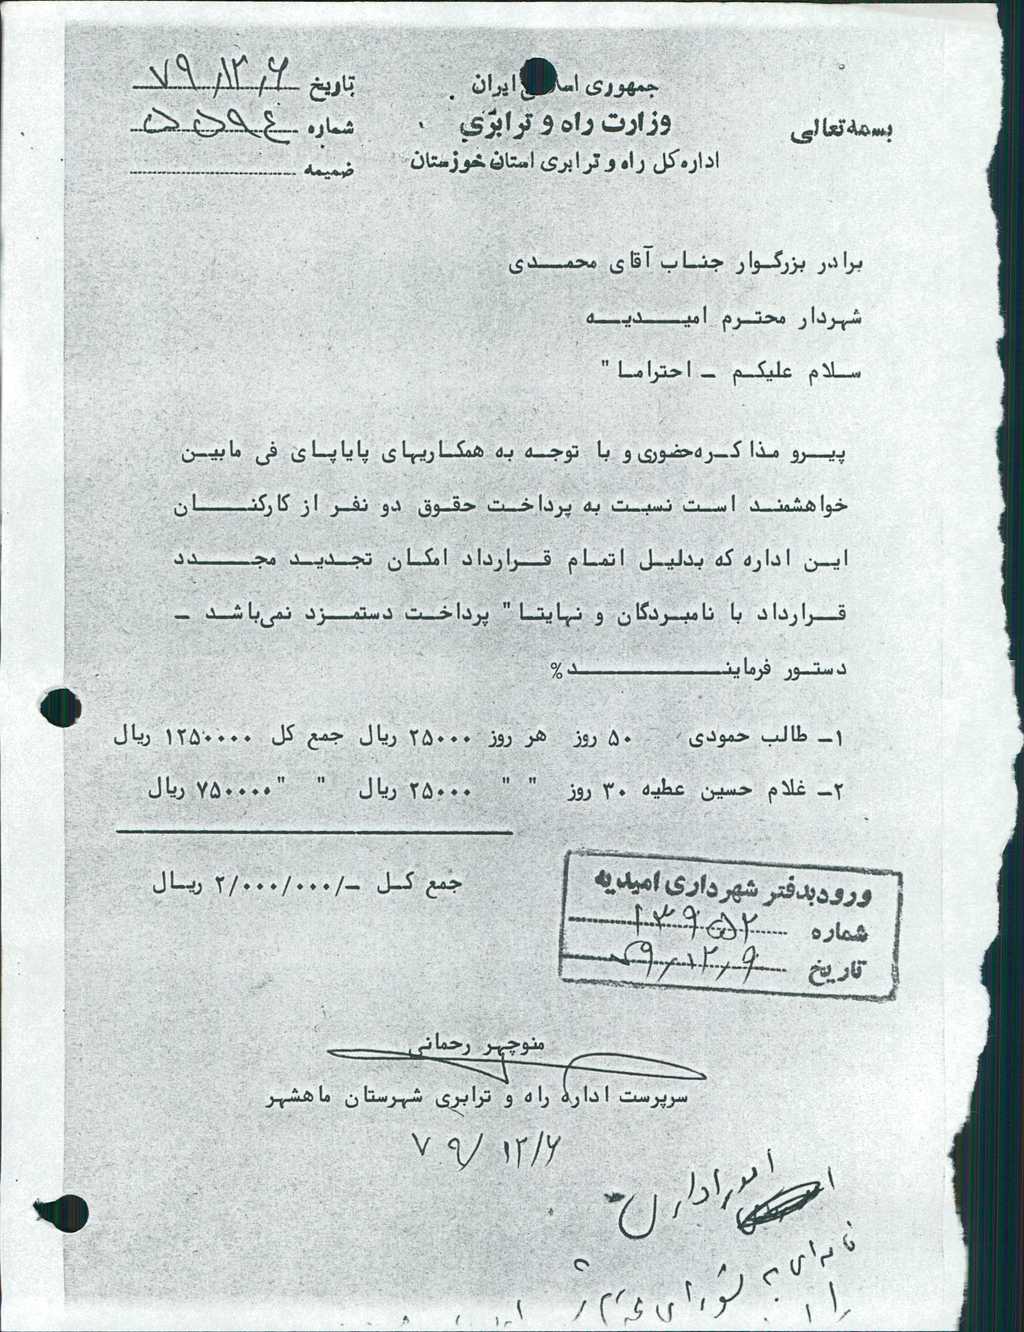 بسمه تعالی
جمهوری اسلامی ایران
وزارت راه و ترابری
اداره کل راه و ترابری استان خوزستان
تاریخ ۷۹٫۱۲٫۶
شماره ۵۵۹۴
ضمیمه
برادر بزرگوار جناب آقای محمدی
شهردار محترم امیدیه
سلام علیکم ـ احتراما"
پیرو مذاکره حضوری و با توجه به همکاریهای پایاپای فی مابین
خواهشمند است نسبت به پرداخت حقوق دو نفر از کارکنان
این اداره که بدلیل اتمام قرارداد امکان تجدید مجدد
قرارداد با نامبردگان و نهایتا" پرداخت دستمزد نمی‌باشد ـ
دستور فرمایند%
۱ـ طالب حمودی ۵۰ روز هر روز ۲۵۰۰۰ ریال جمع کل ۱۲۵۰۰۰۰ ریال
۲ـ غلام حسین عطیه ۳۰ روز " " ۲۵۰۰۰ ریال " " ۷۵۰۰۰۰ ریال
جمع کل ـ/۲/۰۰۰/۰۰۰ ریال
ورود بدفتر شهرداری امیدیه
شماره ۱۳۹۵۲
تاریخ ۷۹٫۱۲٫۹
منوچهر رحمانی
سرپرست اداره راه و ترابری شهرستان ماهشهر
۷۹/۱۲/۶
امور اداری
نامه‌ای به شورای محترم